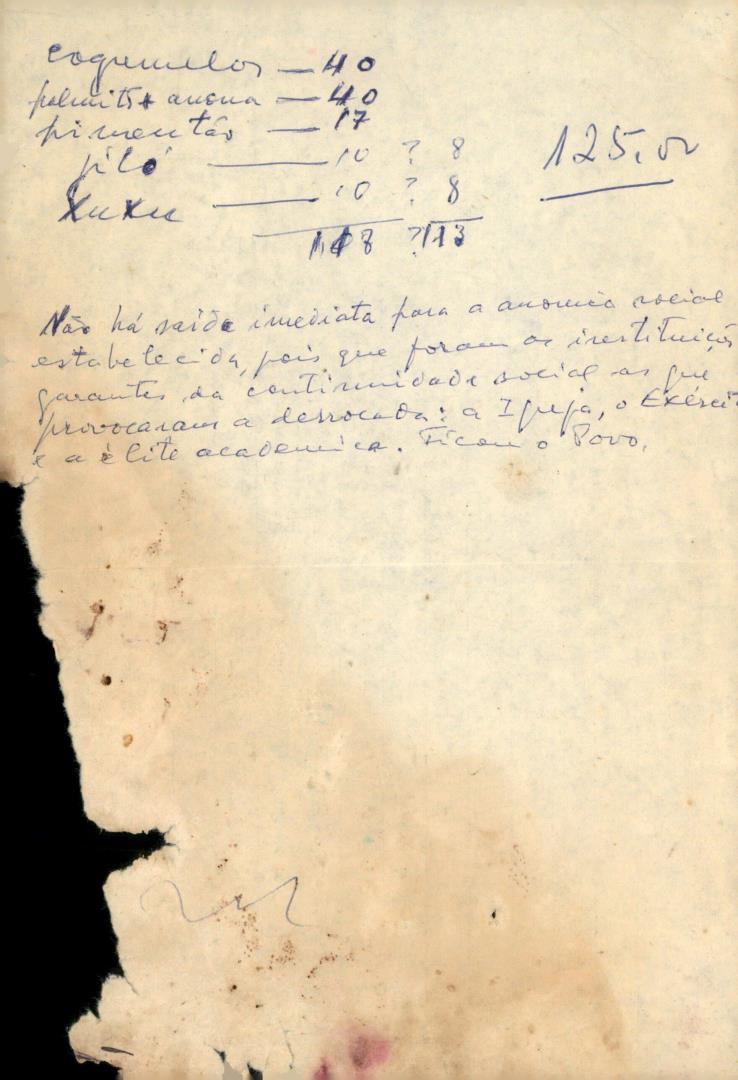 cogumelos — 40
palmito + anona — 40
pimentão — 17
jiló — 10 ? 8
Xuxu — 10 ? 8
? 113
125,00
Não há saída imediata para a anomia social
estabelecida, pois que foram as instituiçõ
garantes da continuidade social as que
provocaram a derrocada: a Igreja, o Exércit
e a élite academica. Ficou o Povo.